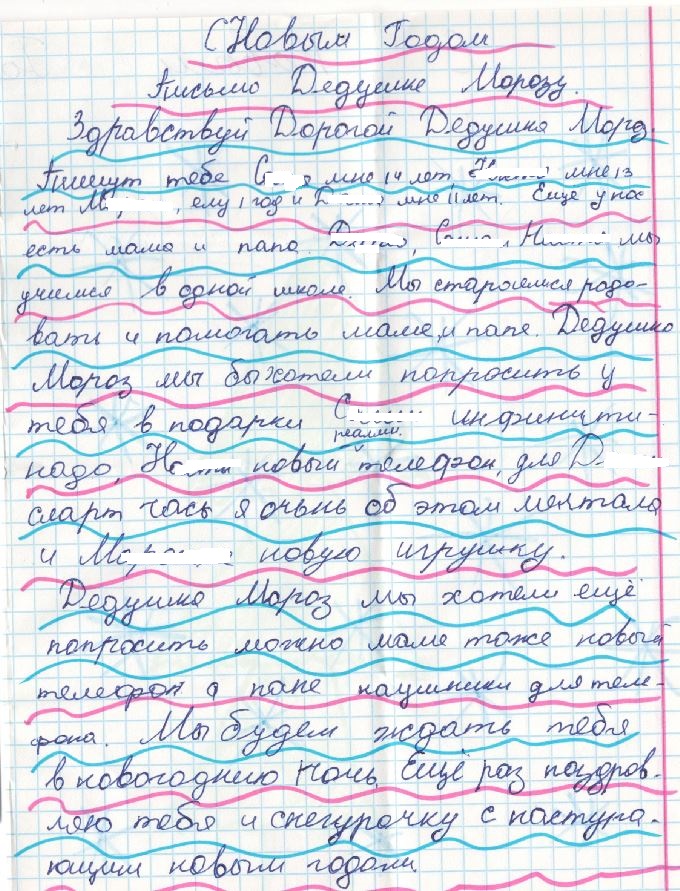 С Новым Годом
Письмо Дедушке Морозу.
Здравствуй Дорогой Дедушка Мороз.
Пишут тебе С я мне 14 лет, мне 13
лет М, ему 1 год и Д мне 11 лет. Ещё у нас
есть мама и папа. Д, С, Н мы
учимся в одной школе. Мы стараемся радо-
вать и помогать маме, и папе. Дедушка
Мороз мы бы хотели попросить у
тебя в подарки С
реалми.
надо, Н новый телефон, для Д
смарт часы я очень об этом мечтала
и М новую игрушку.
Дедушка Мороз мы хотели ещё
попросить можно маме тоже новый
телефон а папе наушники для теле-
фона. Мы будем ждать тебя
в новогоднию ночь. Ещё раз поздров-
ляю тебя и снегурочку с наступа-
ющим новым годом.